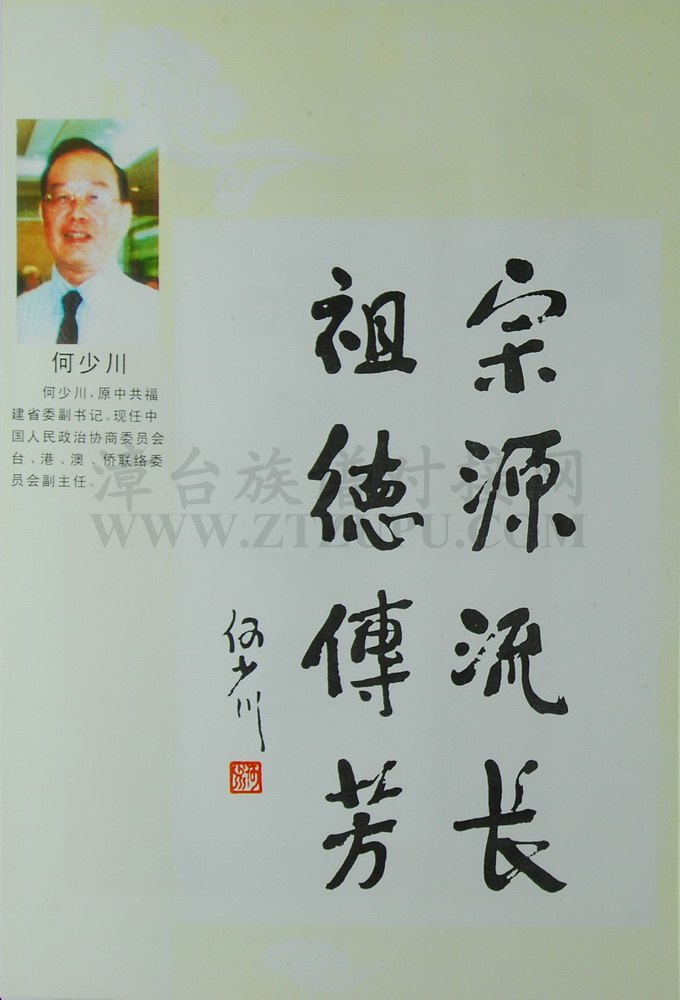 何少川
何少川，原中共福
建省委副书记。现任中
国人民政治协商委员会
台、港、澳、侨联络委
员会副主任。
宗源流长
祖德傳芳
何少川
漳台族谱对接网
WWW.ZTZUPU.COM